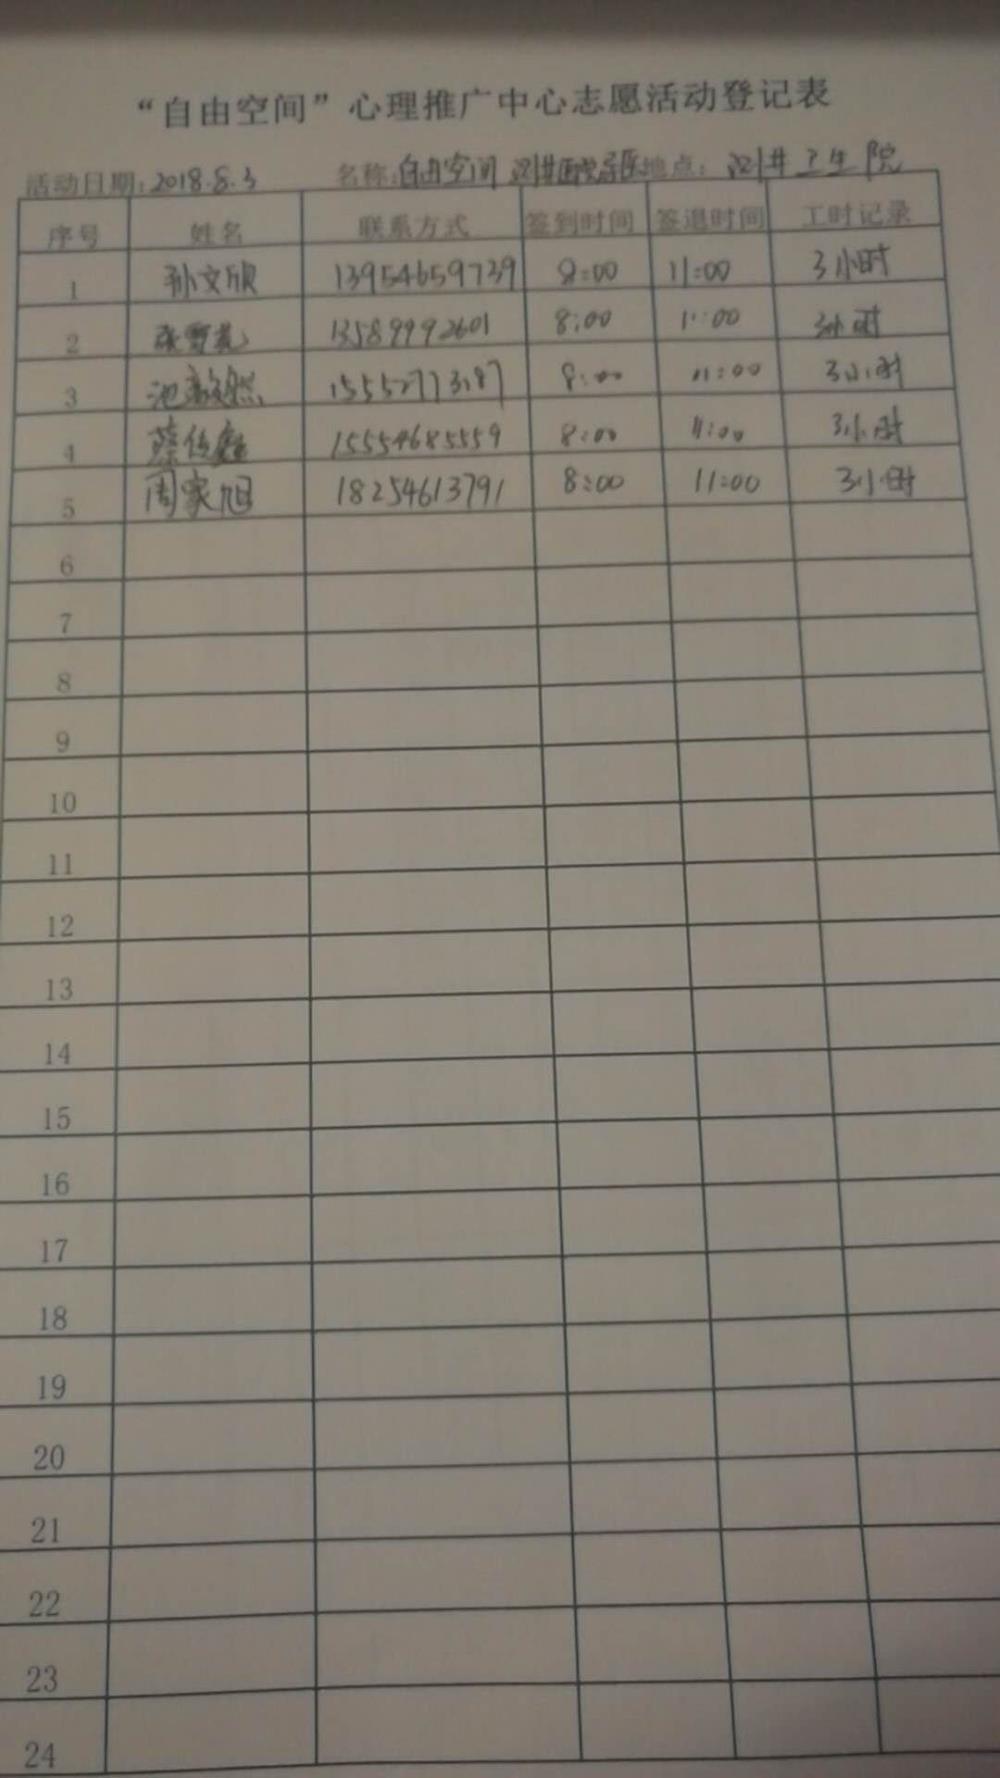 “自由空间”心理推广中心志愿活动登记表
活动日期:2018.8.3 名称:自由空间 地点: 卫生院
序号 姓名 联系方式 签到时间 签退时间 工时记录
1 孙文欣 13954659739 8:00 11:00 3小时
2 13589992601 8:00 11:00 3小时
3 池 15552773187 8:00 11:00 3小时
4 蔡传鑫 15554685559 8:00 11:00 3小时
5 周家旭 18254613791 8:00 11:00 3小时
6
7
8
9
10
11
12
13
14
15
16
17
18
19
20
21
22
23
24